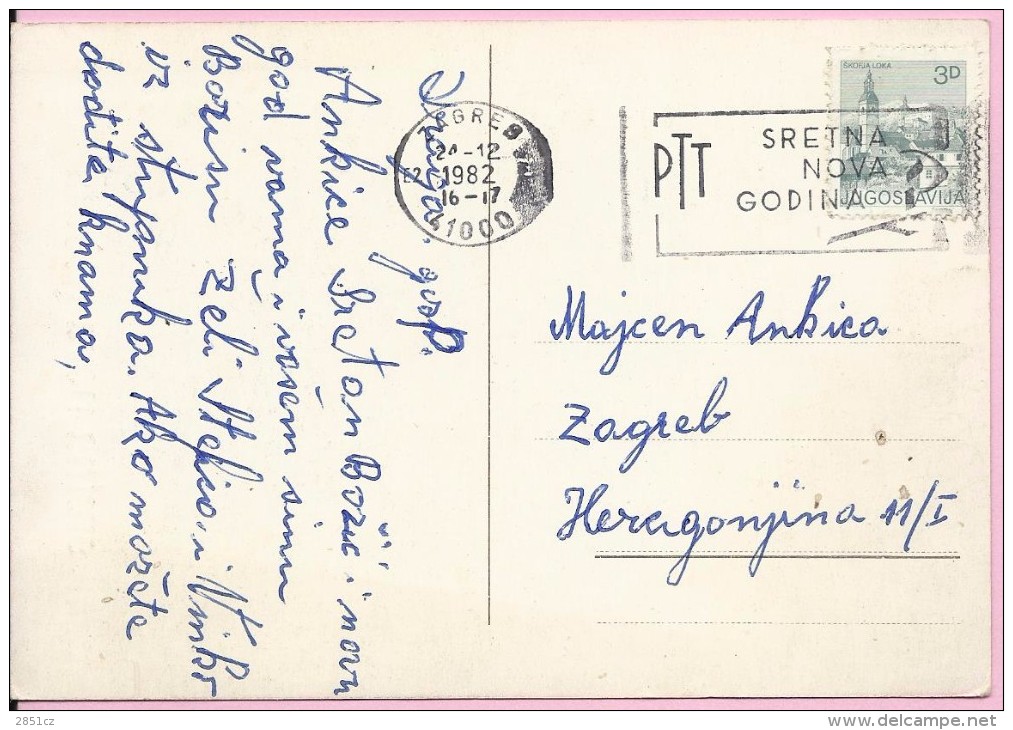 Draga gosp.
Ankice Sretan Božić i novu
god vama i vašem sinu
Borisu želi Štefica i Vinko
uz stupnika. Ako možete
dođite k nama,
ZAGREB
2 -12
1982
16-17
41000
PTT
SRETNA
NOVA
GODINA
ŠKOFJA LOKA
3D
JUGOSLAVIJA
Majcen Ankica
Zagreb
Heragonjina 11/I
2851cz
delcampe.net